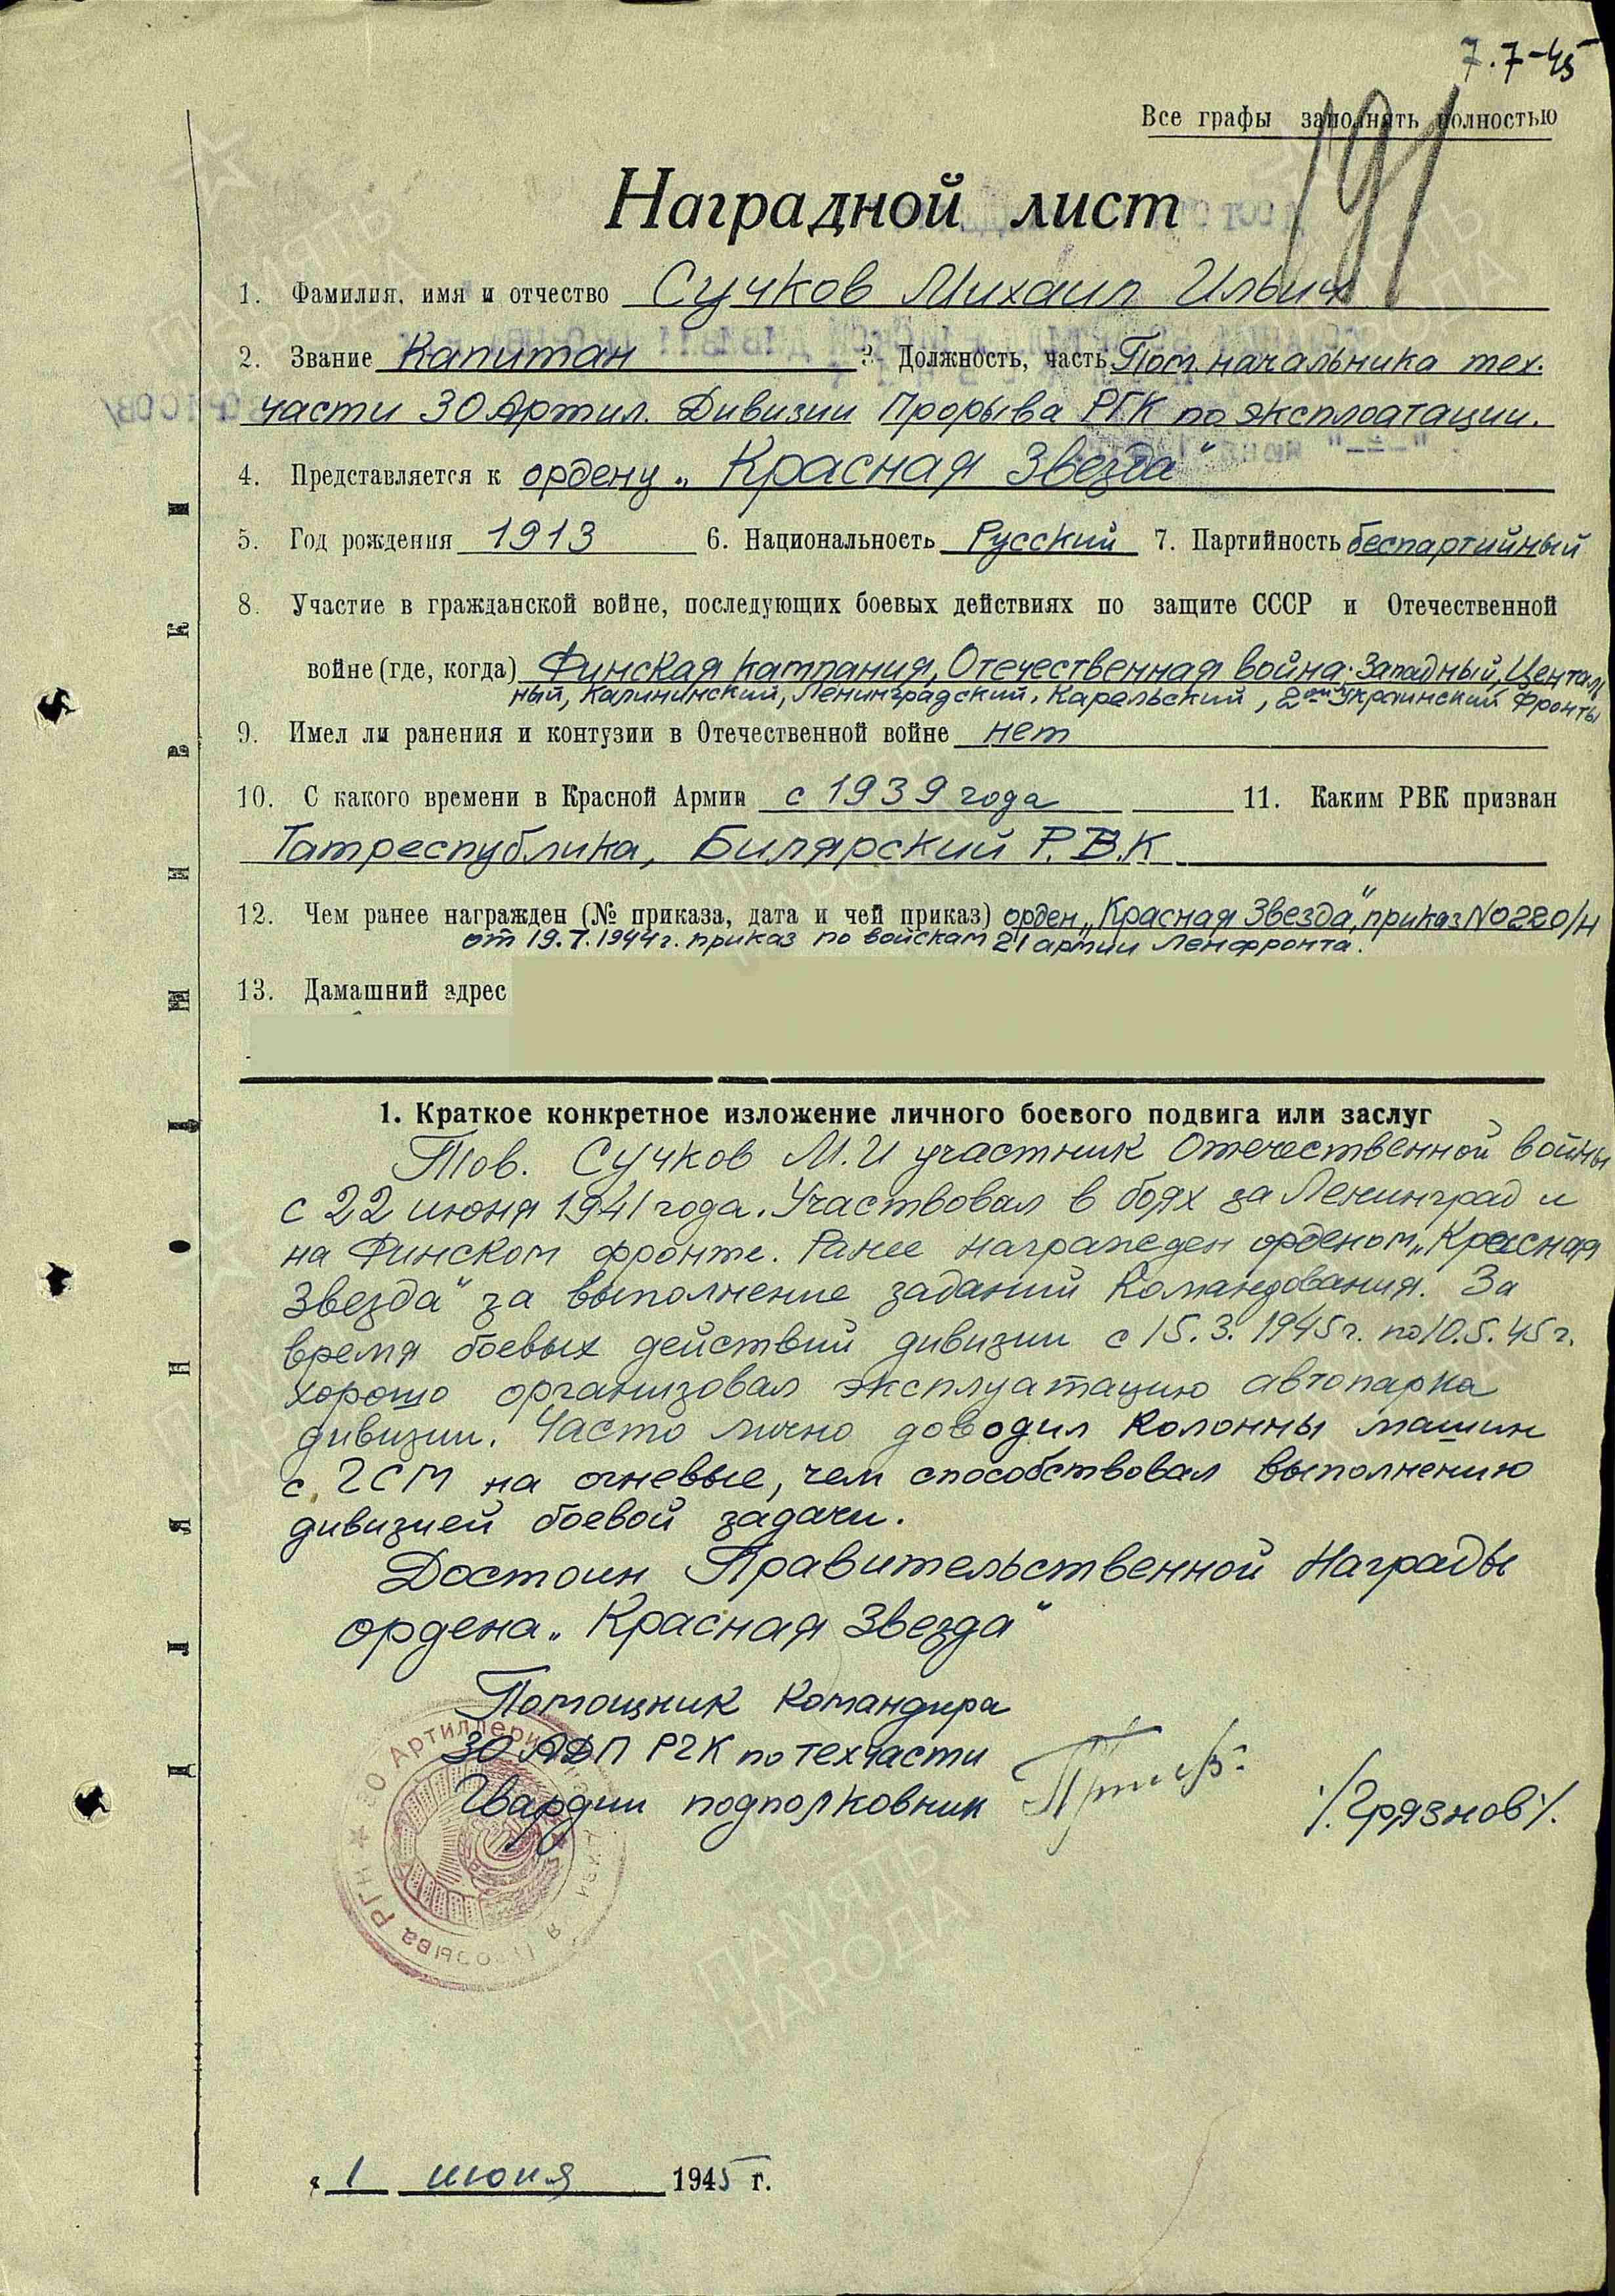 7.7-45
Все графы заполнять полностью
191
Наградной лист
1. Фамилия, имя и отчество Сучков Михаил Ильич
2. Звание Капитан 3. Должность, часть Пом. начальника тех.
части 30 Артил. Дивизии Прорыва РГК по эксплоатации.
4. Представляется к ордену „Красная Звезда"
5. Год рождения 1913 6. Национальность Русский 7. Партийность беспартийный
8. Участие в гражданской войне, последующих боевых действиях по защите СССР и Отечественной
войне (где, когда) Финская кампания, Отечественная война: Западный, Централь
ный, Калининский, Ленинградский, Карельский, 2ой Украинский Фронты
9. Имел ли ранения и контузии в Отечественной войне нет
10. С какого времени в Красной Армии с 1939 года 11. Каким РВК призван
Татреспублика, Билярский Р.В.К.
12. Чем ранее награжден (№ приказа, дата и чей приказ) орден „Красная Звезда", приказ №0220/н
от 19.7.1944г. приказ по войскам 21 армии Ленфронта.
13. Дамашний адрес
1. Краткое конкретное изложение личного боевого подвига или заслуг
Тов. Сучков М.И участник Отечественной войны
с 22 июня 1941 года. Участвовал в боях за Ленинград и
на Финском фронте. Ранее награжден орденом „Красная
Звезда" за выполнение заданий Командования. За
время боевых действий дивизии с 15.3.1945г. по 10.5.45г.
хорошо организовал эксплуатацию автопарка
дивизии. Часто лично доводил колонны машин
с ГСМ на огневые, чем способствовал выполнению
дивизией боевой задачи.
Достоин Правительственной Награды
ордена „Красная Звезда"
Помощник Командира
30 АДП РГК по техчасти
Гвардии подполковник /Грязнов/.
30 Артиллерий
Прорыва РГК
«1 июня 1945 г.
ЛИНИЯ ДЛЯ ПОДШИВКИ
ПАМЯТЬ
НАРОДА